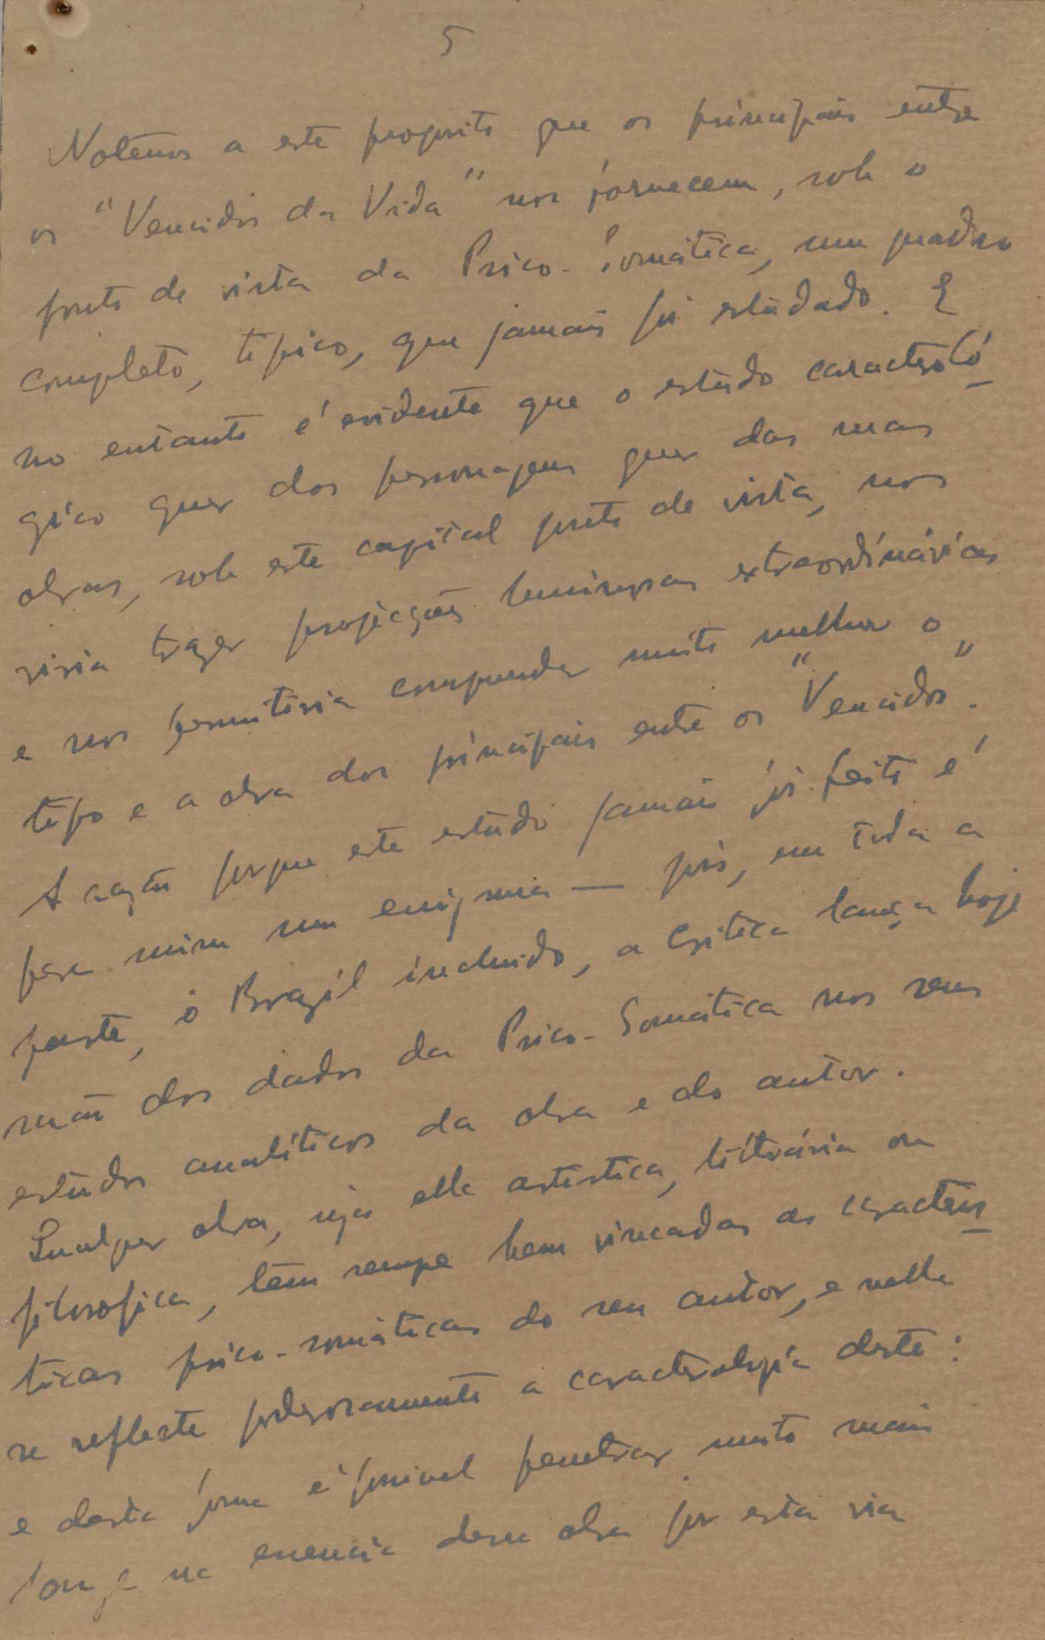 5
Notemos a este proposito que os principais entre
os "Vencidos da Vida" nos fornecem, sob o
ponto de vista da Psico-Somática, um quadro
completo, tipico, que jamais foi estudado. E
no entanto é evidente que o estudo caracteroló
gico quer dos personagens quer das suas
obras, sob este capital ponto de vista, nos
viria trazer projecções luminosas extraordinárias
e nos permitiria compreender muito melhor o
tipo e a obra dos principais entre os "Vencidos".
A razão porque este estudo jamais foi feito é
para mim um enigma — pois, em toda a
parte, o Brazil incluido, a Critica lança hoje
mão dos dados da Psico-Somática nos seus
estudos analíticos da obra e do autor.
Qualquer obra, seja ella artistica, litterária ou
filosofica, tem sempre bem vincadas as caracterís
ticas psico-somáticas do seu autor, e nella
se reflecte poderosamente a caracterologia deste:
e desta forma é possivel penetrar muito mais
longe na essencia dessa obra por esta via